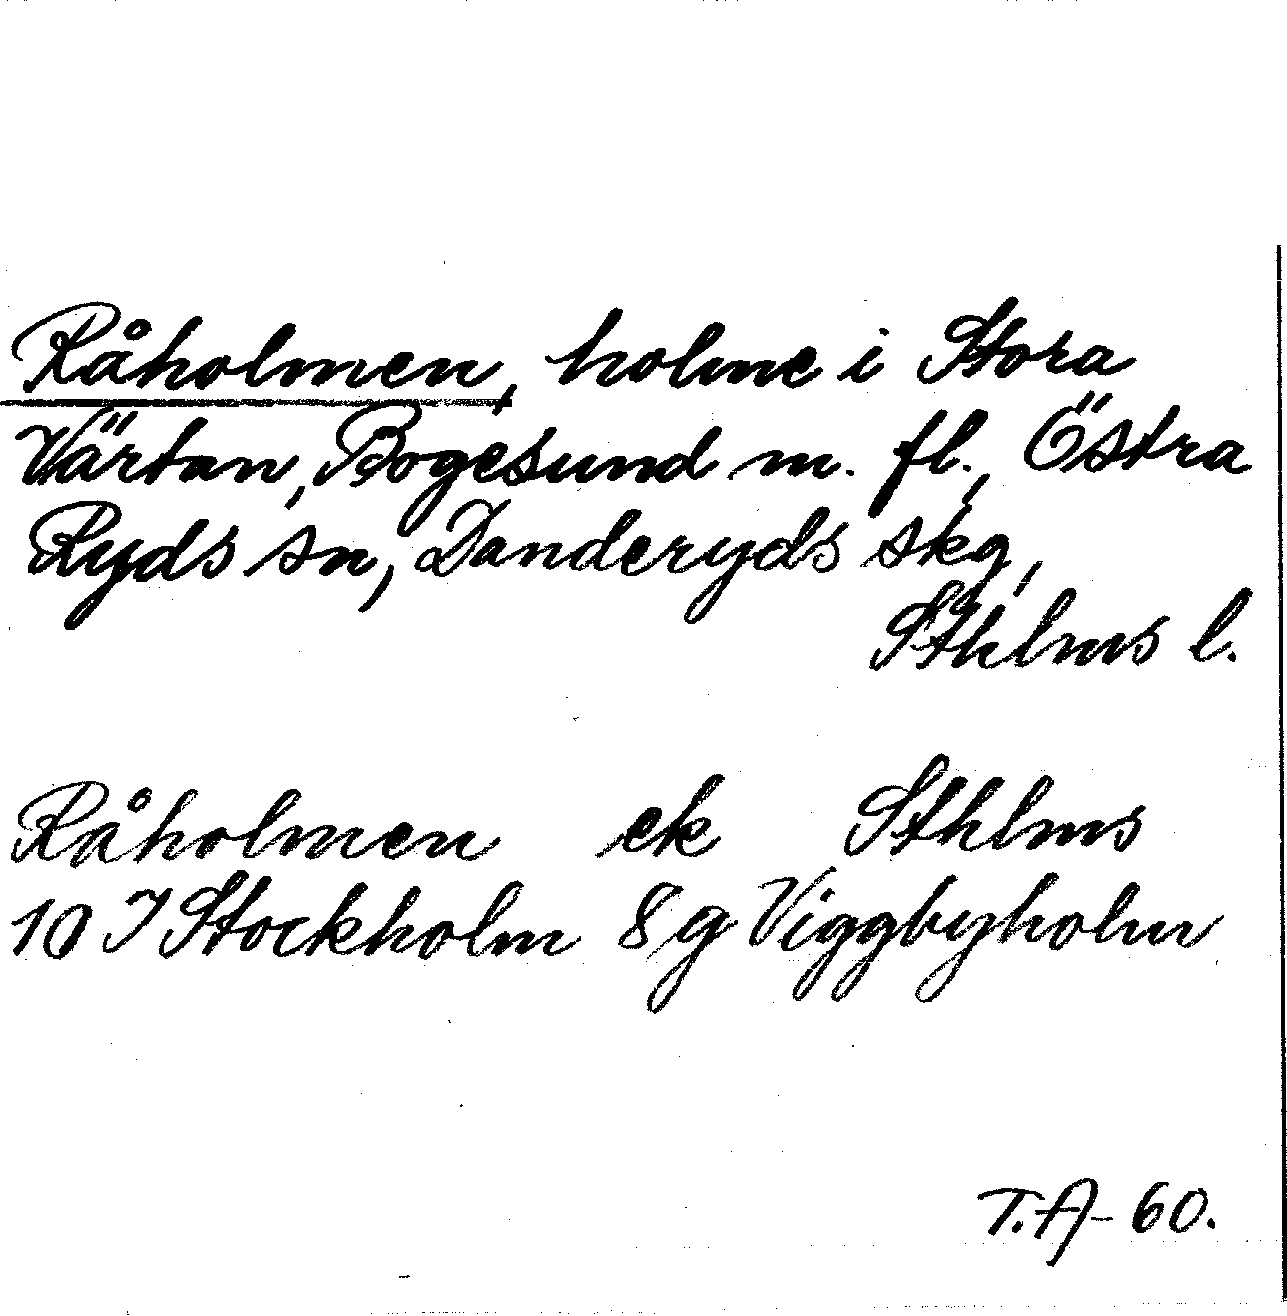 Råholmen, holme i Stora
Värtan, Bogesund m. fl., Östra
Ryds sn, Danderyds skg,
Sthlms l.
Råholmen ek Sthlms
10 I Stockholm 8 g Viggbyholm
T.A-60.